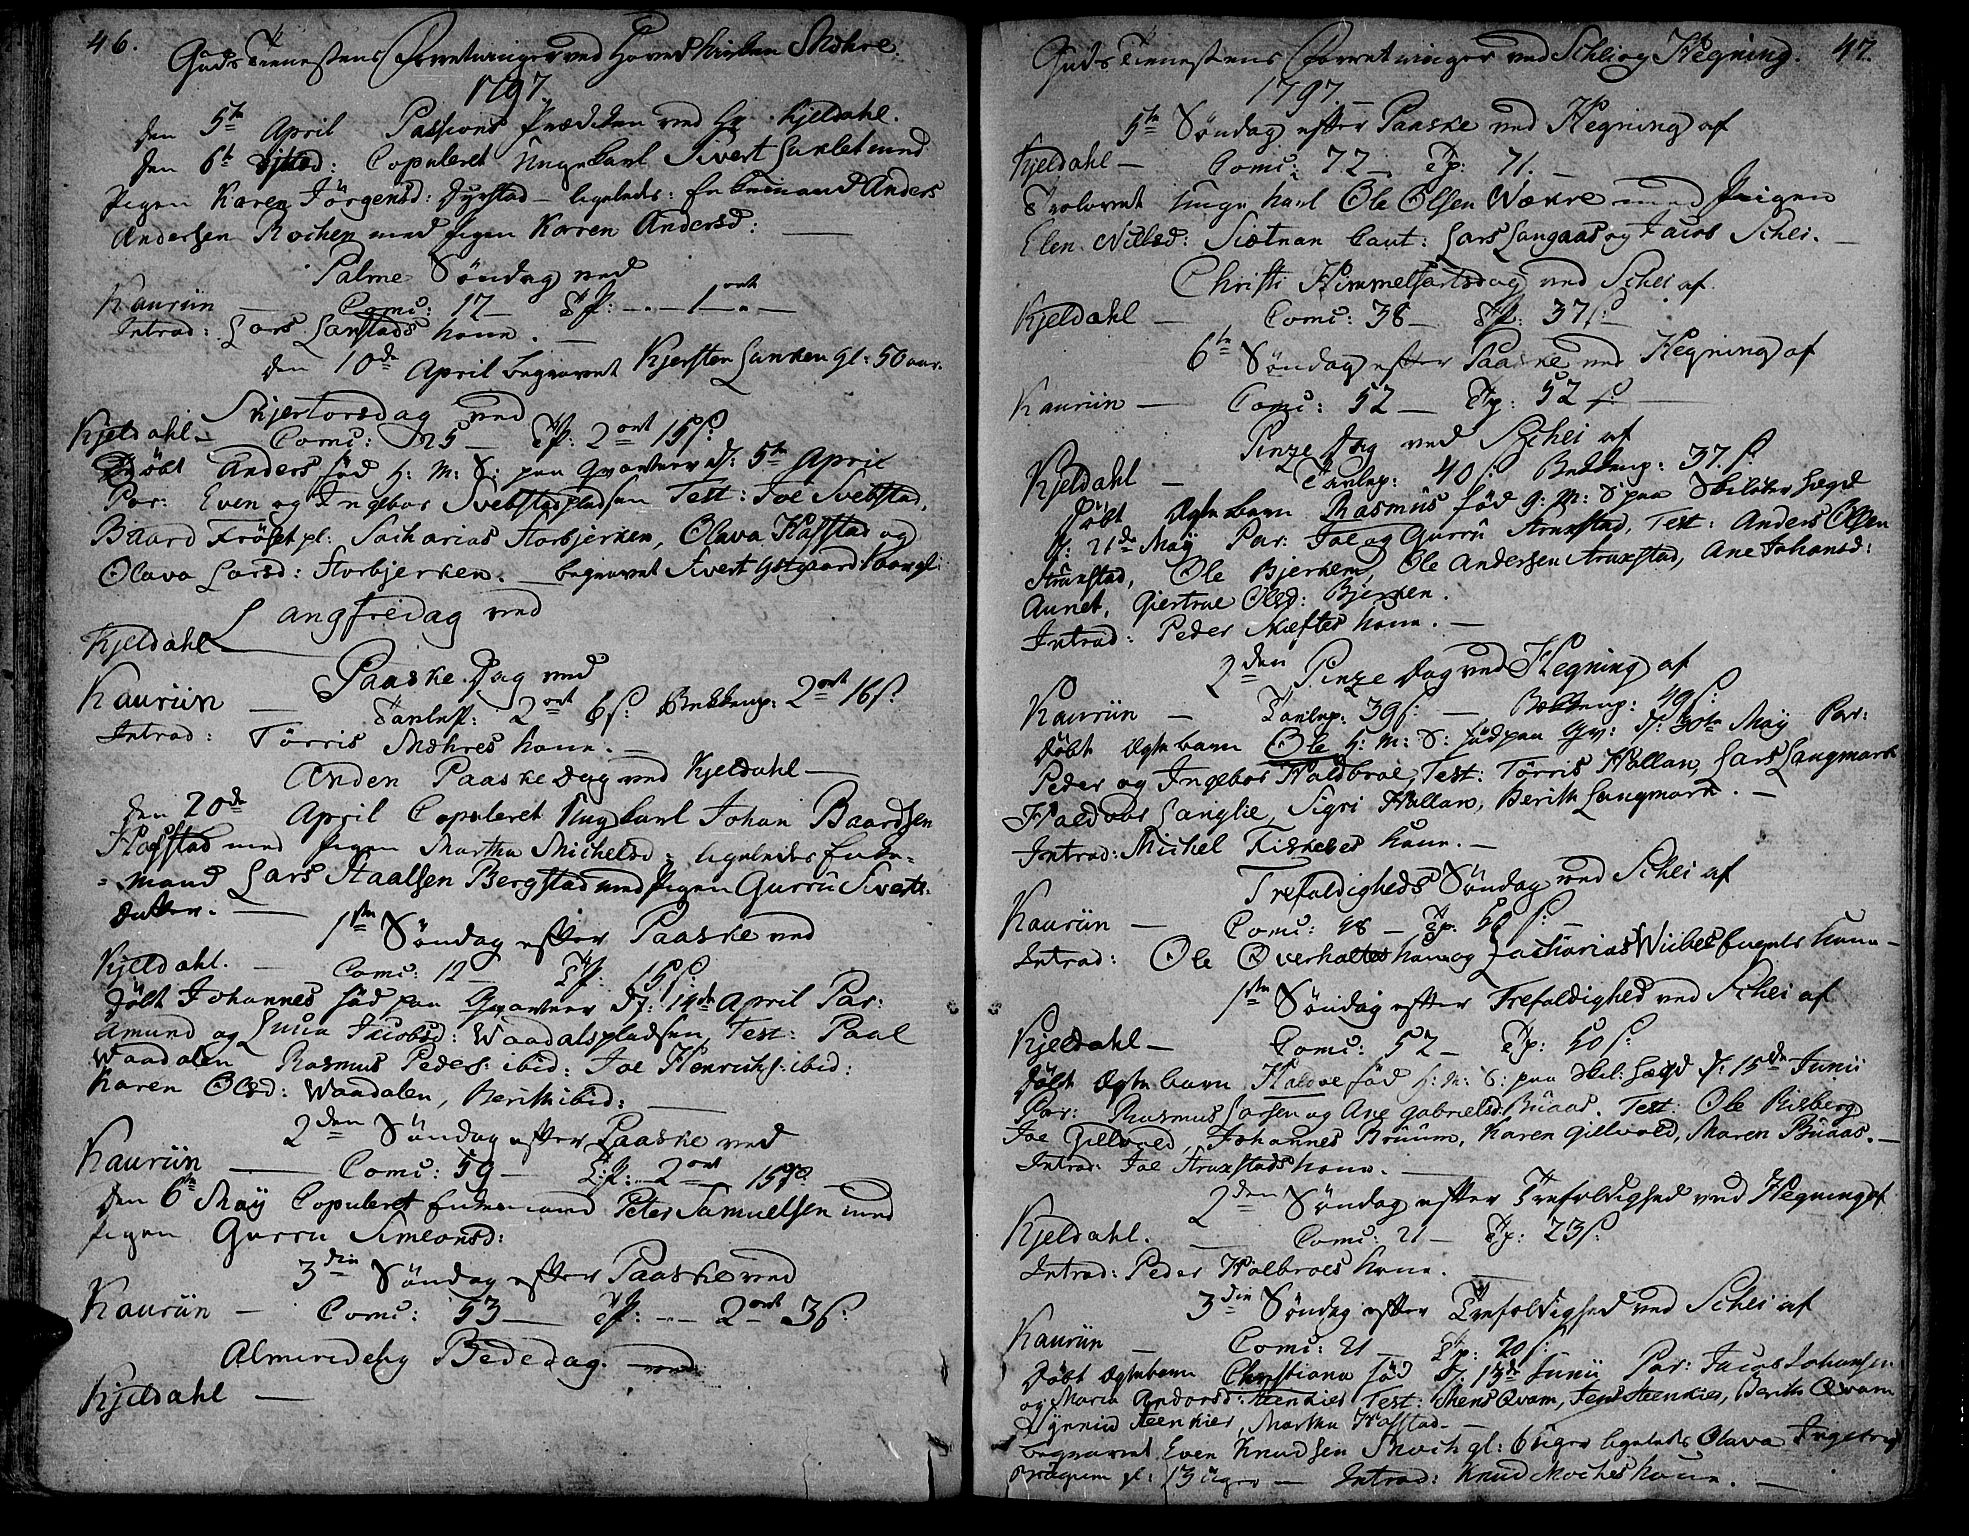 46.
Guds Tienestens Forretninger ved Hoved Kirken Mæhre.
1797
den 5te April Passions Prædiken ved Hr Kjeldahl.
den 6te Copuleret Ungekarl Sivert med
Pigen Karen Jörgensd: Dyrstad - ligeledes: Enkemand Anders
Andersen Rochen med Pigen Karen Andersd:
Palme Söndag ved
Kaurün — Comu: 17 — Tf: - - 1 ort -
Introd: Lars Larstads kone.
den 10de April begravet Kjersten gl: 50 aar.
Skjertorsdag ved
Kjeldahl — Comu: 25 — Tf: 2 ort 15 s:
Döbt Anders föd H: M: D: paa Qvarteer d: 5te April
Par: Even og Ingebor Svebstadpladsen Test: Joe Svebstad,
Baard Fröset pl: Sacharias Storbjerken, Olava Hafstad og
Olava Larsd: Storbjerken. — begravet Sivert
Langfredag ved
Kjeldahl
Paaske Dag ved
Kaurün — Tavlep: 2 ort 6 s: Bekkenp: 2 ort 16 s:
Introd: Törris Mæhres kone. —
Anden Paaske Dag ved Kjeldahl —
den 20de April Copuleret Ungkarl Johan Baardsen
Hafstad med Pigen Martha Michelsd: ligeledes Enke-
mand Lars Staalsen Bergstad med Pigen Gurru Siverts-
datter. —
1ste Söndag efter Paaske ved
Kjeldahl. — Comu: 12 — Tf: 15 s:
Döbt Johannes föd paa Qvarteer d: 14de April Par:
Amund og Lucia Jacobsd: Waadalspladsen Test: Paal
Waadalen Rasmus Peders: ibid: Joe Henrichs: ibid:
Karen Olsd: Waadalen, Berith ibid: —
2den Söndag efter Paaske ved
Kaurün — Comu: 59 — Tf: 2 ort 15 s:
den 6te Maÿ Copuleret Enkemand Peter Samuelsen med
Pigen Gurru Simeonsd:
3die Söndag efter Paaske ved
Kaurün — Comu: 53 — Tf: - - 2 ort 3 s:
Almindelig Bededag ved
Kjeldahl —
Guds Tienestens Forretninger ved Schei og Hegning. 47.
1797. —
5te Söndag efter Paaske ved Hegning af
Kjeldahl — Comu: 72 — Tf: 71. —
Trolovet Unge karl Ole Olsen Wække med Pigen
Elen Nillsd: Siætnan Caut: Lars Langaas og Jacob Schei. —
Christi Himmelfartsdag ved Schei af
Kjeldahl — Comu: 38 — Tf: 37 s: —
6te Söndag efter Paaske ved Hegning af
Kaurün — Comu: 52 — Tf: 52 s: —
Pinze Dag ved Schei af
Kjeldahl — Tavlep: 40 s: Bekkenp: 37. s:
Döbt Ægtebarn Rasmus föd H: M: D paa Skilober Lægd
d: 21de Maÿ Par: Joe og Gurru Struxstad, Test: Anders Olsen
Struxstad, Ole Bjerkem, Ole Andersen Struxstad, Ane Johansd:
Aunet, Giertrue Olsd: Bjerken.
Introd: Peder Næstes kone. —
2den Pinze Dag ved Hegning af
Kaurün — Tavlep: 39 s: — Bekkenp: 49 s:
Döbt Ægtebarn Ole H: M: D: föd paa Qv: d: 30te Maÿ Par:
Peder og Ingebor Haldbroe, Test: Törris Hallan, Lars Langmark
Haldvor Langlie, Sigri Hallan, Berith Langmark. —
Introd: Michel Fiskeses kone. —
Trefoldigheds Söndag ved Schei af
Kaurün — Comu: 48 — Tf: 40 s: —
Introd: Ole Overholtes kone og Zacharias Wiibes kone —
1ste Söndag efter Trefoldighed ved Schei af
Kjeldahl — Comu: 52 — Tf: 50 s:
Döbt Ægtebarn Haldoe föd H: M: D: paa Skil: Lægd d: 15de Junii
Par: Rasmus Larsen og Ane Gabrielsd: Büaas. Test: Ole Risberg
Joe Gillvold, Johannes Bruum, Karen Gillvold, Maren Büaas. —
Introd: Joe Struxstads kone. —
2den Söndag efter Trefoldighed ved Hegning af
Kjeldahl. — Comu: 21 — Tf: 23 s:
Introd: Peder Halbroes kone. —
3die Söndag efter Trefoldighed ved Schei af
Kaurün — Comu: 21 — Tf: 20 s:
Döbt Ægtebarn Christiana föd d: 13de Junii Par: Jacob Johansen
og Maria Andersd: Steenkier Test: Mens Qvam, Jens Steenkier, Berith Qvam
Dynnid Steenkier, Martha Hafstad. —
begravet Even Knudsen Moch gl: 6 Uger ligeledes Olava
gl: 13 Uger — Introd: Knud Moches kone. —